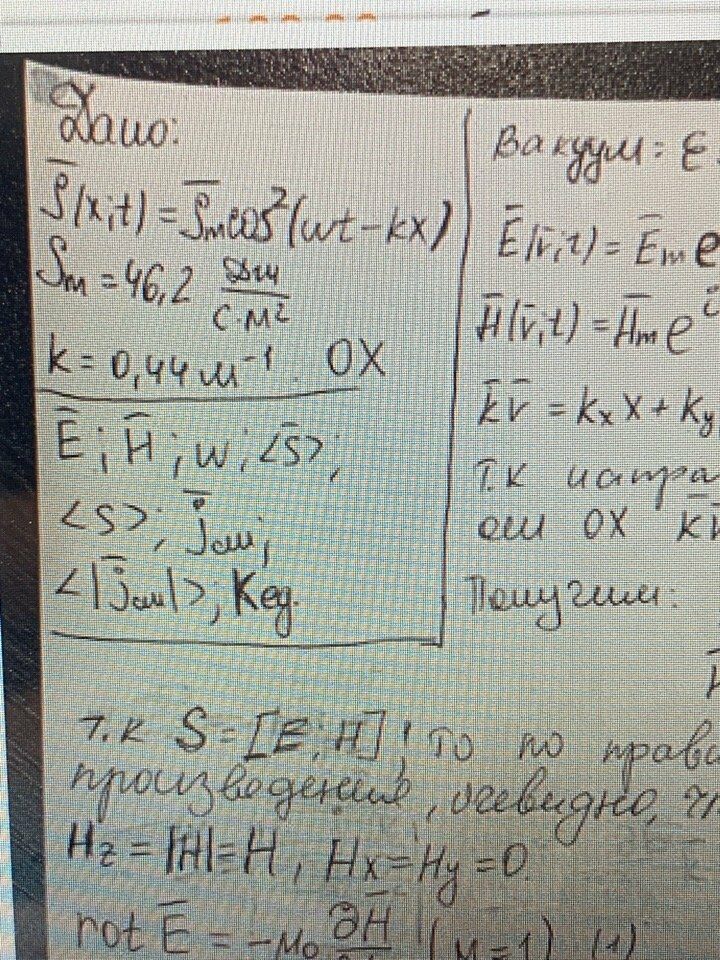 Дано:
S̄(x,t) = S̄m cos²(ωt – kx)
Sm = 46,2 Дж/(с·м²)
k = 0,44 м⁻¹. OX
Ē; H̄; w; <S̄>;
<S>; j̄см;
<|j̄см|>; Kед.
Вакуум: ε
Ē(r̄,t) = Ēm e
H̄(r̄,t) = H̄m e^i
k̄r̄ = kx x + ky
т.к напра
оси OX k̄r̄
Получим:
т.к S = [E; H], то по прав
произведения, очевидно,
Hz = |H| = H, Hx = Hy = 0.
rot Ē = –μ₀ ∂H̄ (μ=1) (1)